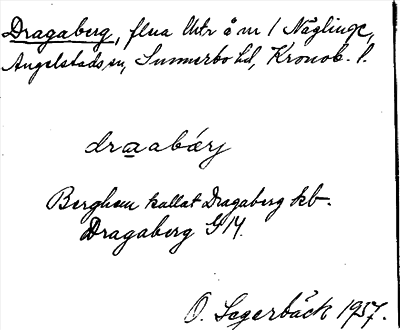 Dragaberg, flera Utr å m 1 Näglinge,
Angelstads sn, Sunnerbo hd, Kronob. l.
draabærj
Berghem kallat Dragaberg kb.
Dragaberg G 14.
O. Lagerbäck 1937.